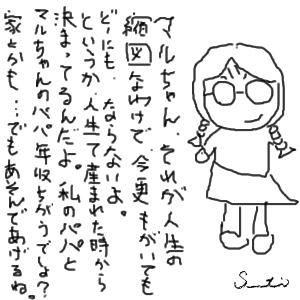 マルちゃん、それが人生の
縮図なわけで今更もがいても
どーにも、ならないよ。
というか人生て産まれた時から
決まってるんだよ。私のパパと
マルちゃんのパパ年収ちがうでしょ?
家とかも…でもあそんであげるね。